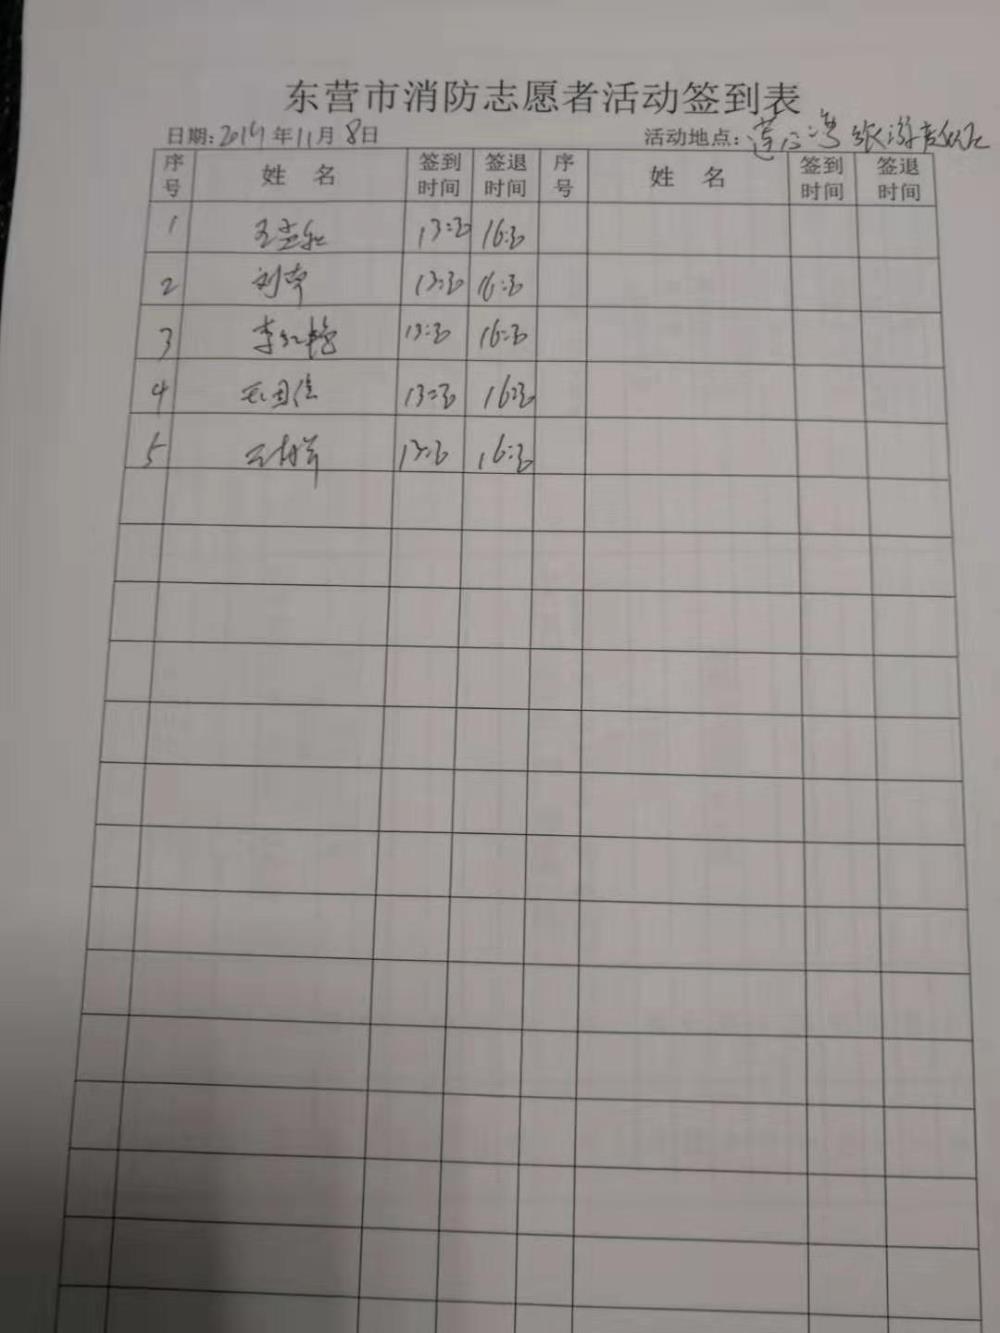 东营市消防志愿者活动签到表
日期:2019年11月8日 活动地点:
序号 姓 名 签到时间 签退时间 序号 姓 名 签到时间 签退时间
1 13:30 16:30
2 刘 13:30 16:30
3 李红艳 13:30 16:30
4 13:30 16:30
5 13:30 16:30